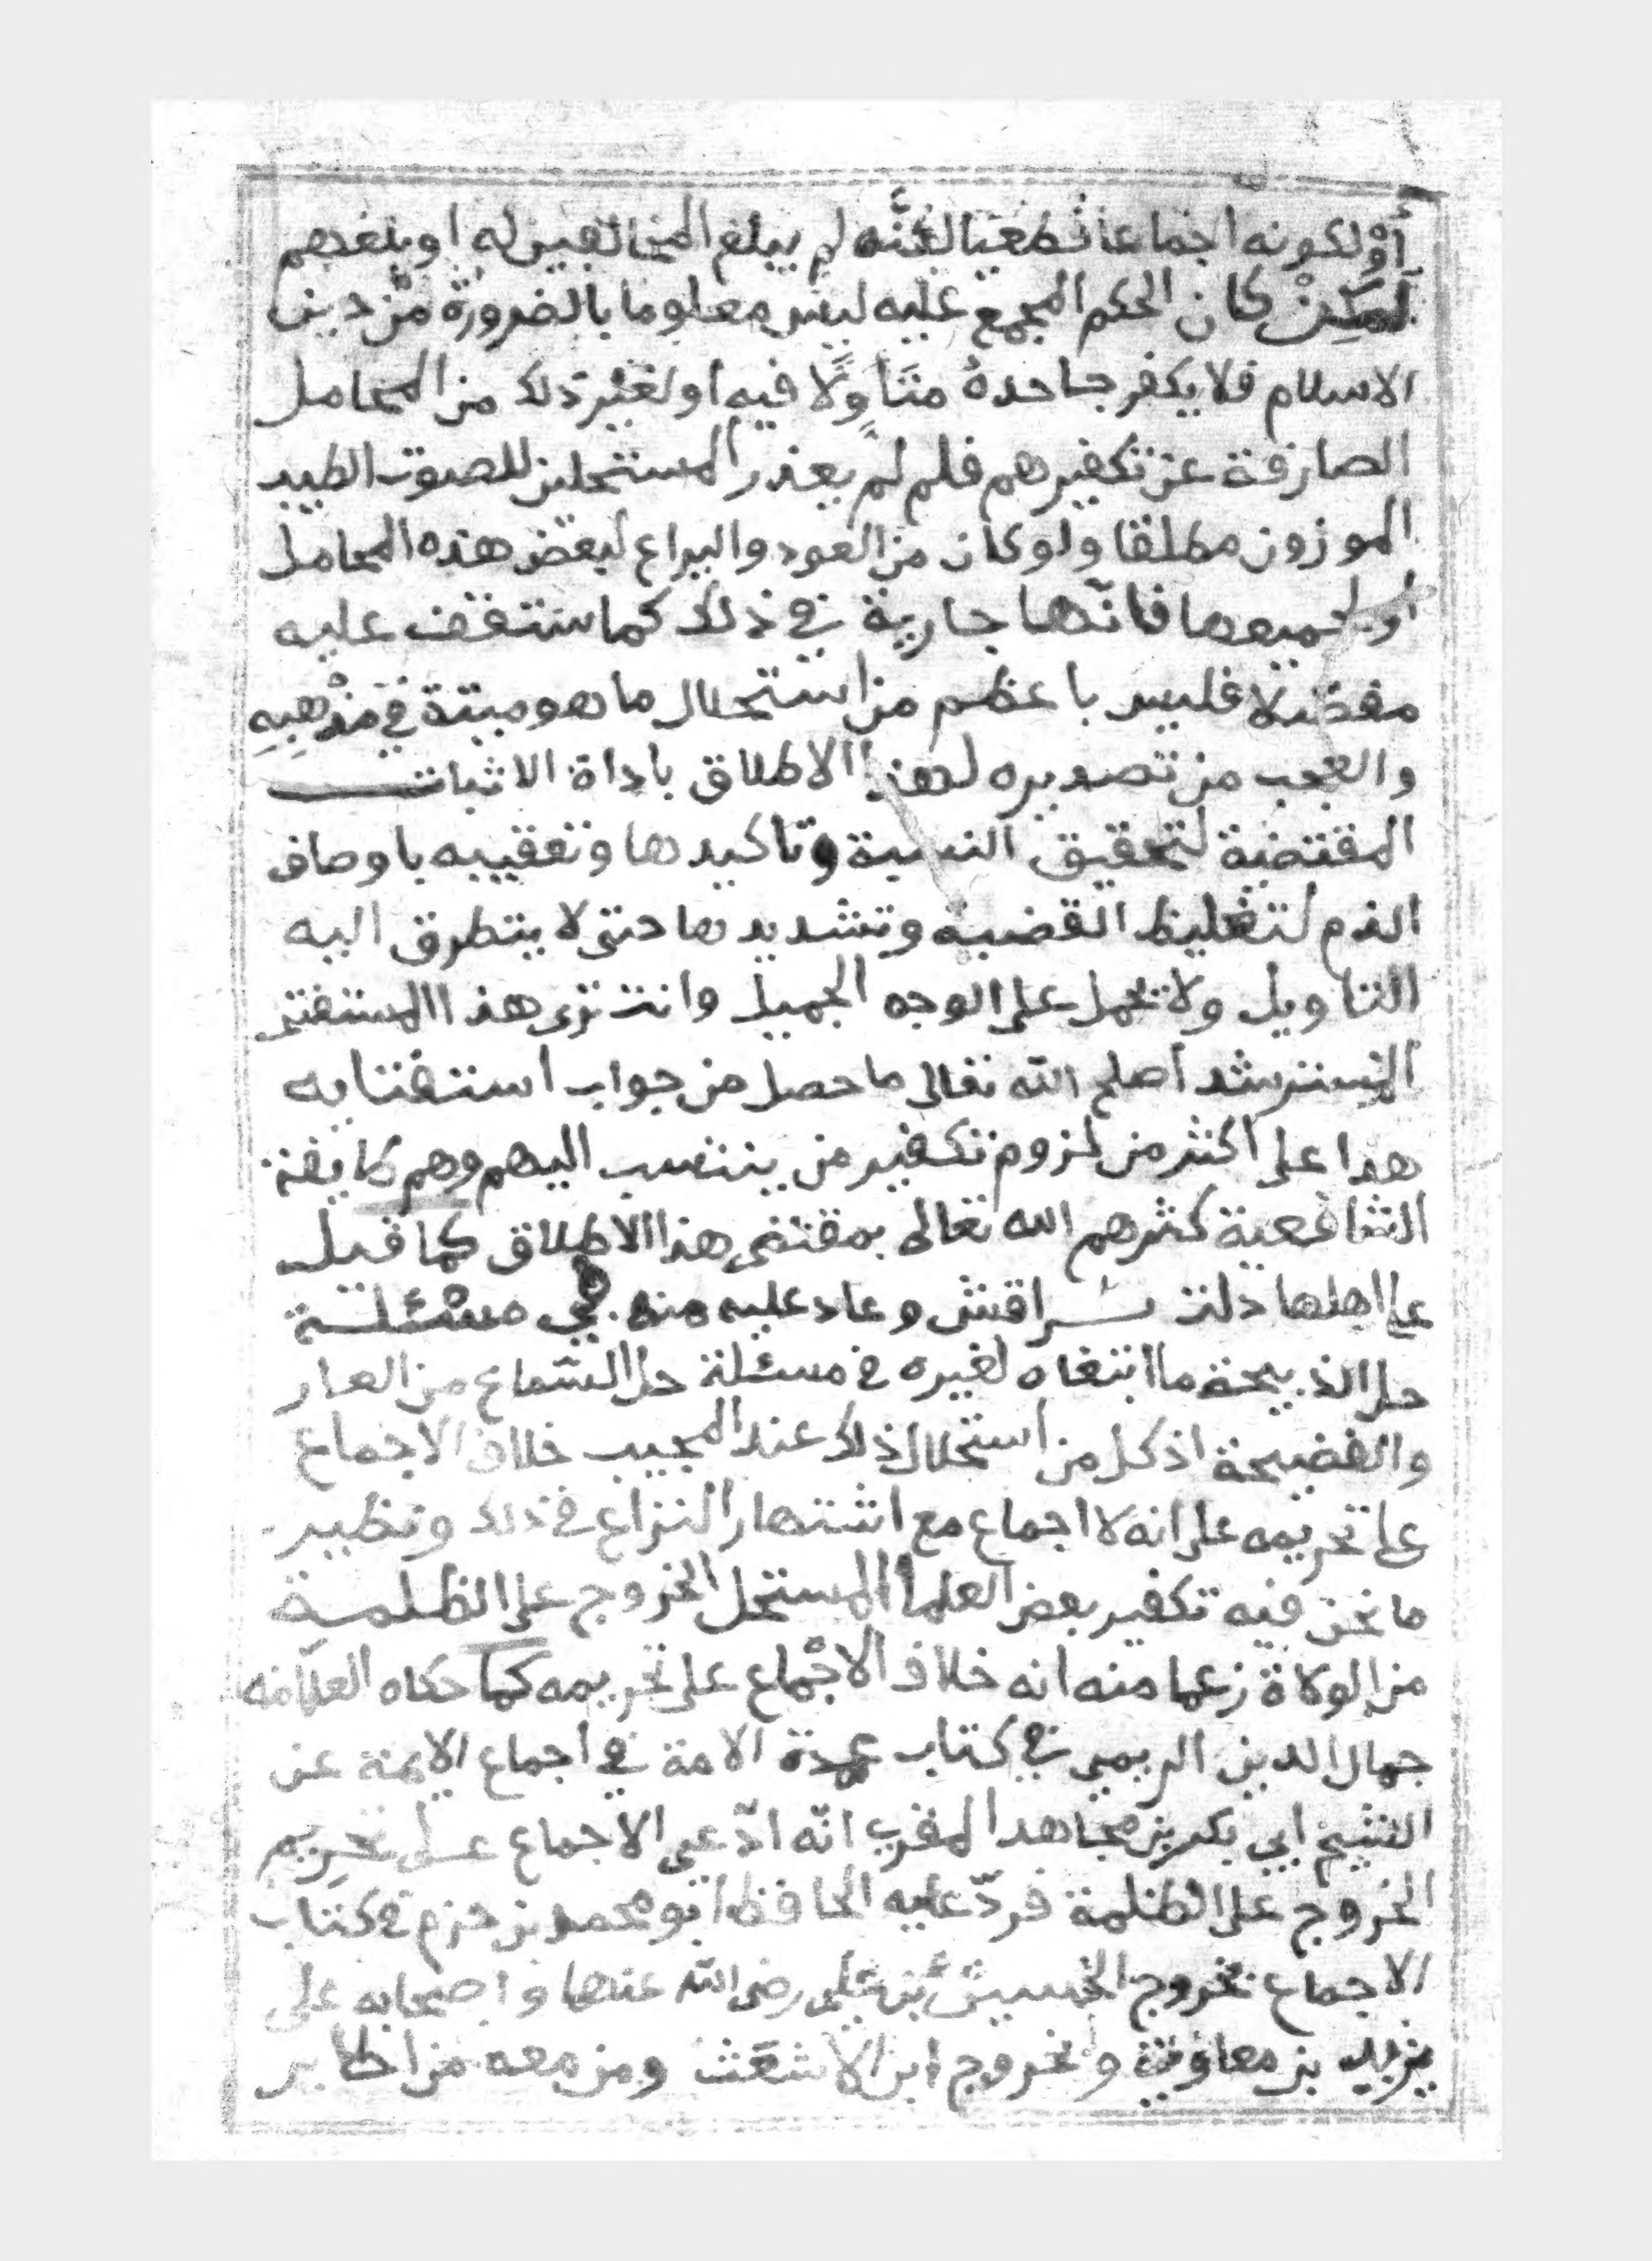 أوْلكونه اجماعا قطعيا لكنَّه لم يبلغ المخالفين له او بلغهم
لَكِنْ كان الحكم المجمع عليه ليس معلوما بالضرورة من دين
الاسلام فلا يكفر جاحدهُ متَأوِلًا فيه او لغير ذلك من المحامل
الصارفة عن تكفيرهم فلم لم يعذر المستحلين للصوت الطيب
الموزون مطلقا ولو كان من العود واليراع لبعض هذه المحامل
او لجميعها فانّها جارية في ذلك كما ستقف عليه
مفصّلا فليس باعظم من استحلال ما هو ميتة في مذْهبِهِ
والعجب من تصديره لهذا الاطلاق باداة الاثبات
المقتضية لتحقيق النسبة وتاكيدها وتعقيبه باوصاف
الذم لتغليظ القضية وتشديدها حتى لا يتطرق اليه
التاويل ولا تحمل على الوجه الجميل وانت ترى هذا المستفتى
المسترشد اصلح الله تعالى ما حصل من جواب استفتايه
هذا على اكثر من لزوم تكفير من ينتسب اليهم وهم طايفة
الشافعية كثرهم الله تعالى بمقتضى هذا الاطلاق كما قيل
على اهلها دلت براقش وعاد عليه منه في مسْئلة
حل الذبيحة ما ابتغاه لغيره في مسئلة حل السماع من العار
والفضيحة اذ كل من استحلال ذلك عند المجيب خلاف الاجماع
على تحريمه على انه لا اجماع مع اشتهار النزاع في ذلك ونظير
ما نحن فيه تكفير بعض العلما المستحل الخروج على الظلمة
من الولاة زعما منه انه خلاف الاجماع على تحريمه كما حكاه العلامه
جمال الدين الريمي في كتاب عمدة الامة في اجماع الايمة عن
الشيخ ابي بكر بن مجاهد المقري انّه ادّعى الاجماع على تحريم
الخروج على الظلمة فردّ عليه الحافظ ابو محمد بن حزم في كتاب
الاجماع بخروج الحسين بن علي رضى الله عنهما واصحابه على
يزيد بن معاوية وبخروج ابن الاشعث ومن معه من اكابر